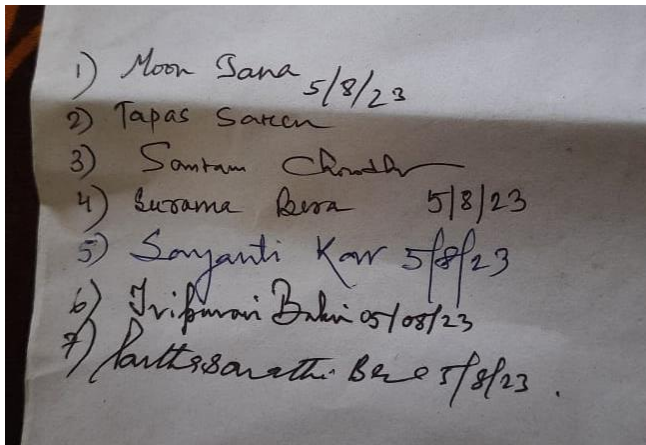 1) Moon Jana 5/8/23
2) Tapas Sareen
3) Santam
4) Surama Bera 5/8/23
5) Sayanti Kar 5/8/23
6) Tripurari 05/08/23
7) Parthasarathi Bera 5/8/23.